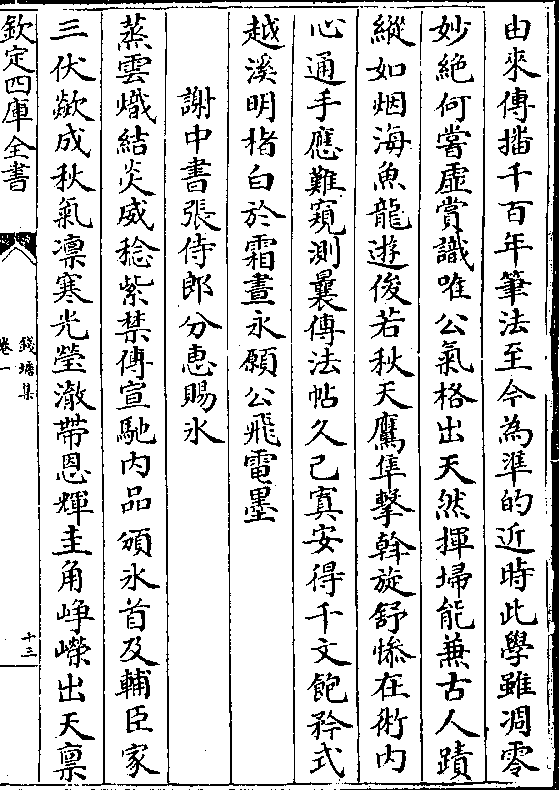 由來傳播千百年筆法至今為準的近時此學雖凋零
妙絶何嘗虛賞識唯公氣格出天然揮埽能兼古人蹟
縱如烟海魚龍遊俊若秋天鷹隼擊斡旋舒慘在術内
心通手應難窺測曩傳法帖久已寘安得千文飽矜式
越溪明楮白於霜晝永願公飛電墨
謝中書張侍郎分惠賜氷
蒸雲熾結炎威稔紫禁傳宣馳内品頒氷首及輔臣家
三伏歘成秋氣凛寒光瑩澈帶恩輝圭角峥嶸出天稟
欽定四庫全書
錢塘集
卷一
十三